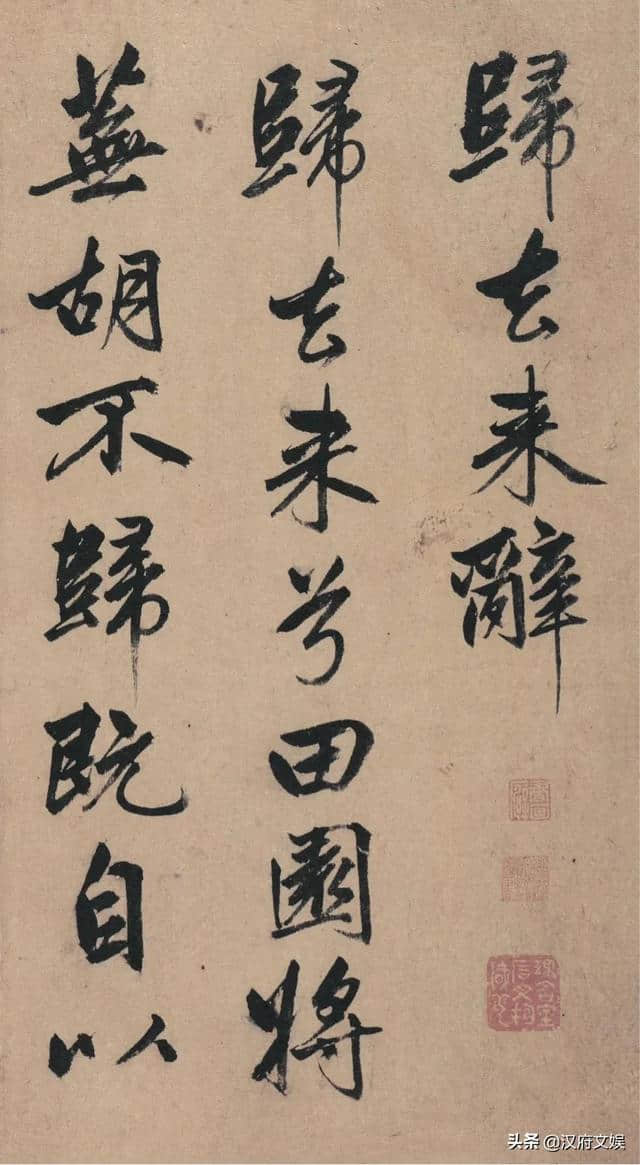 歸去来辭
歸去来兮田園將
蕪胡不歸既自以
头条@汉府文娱